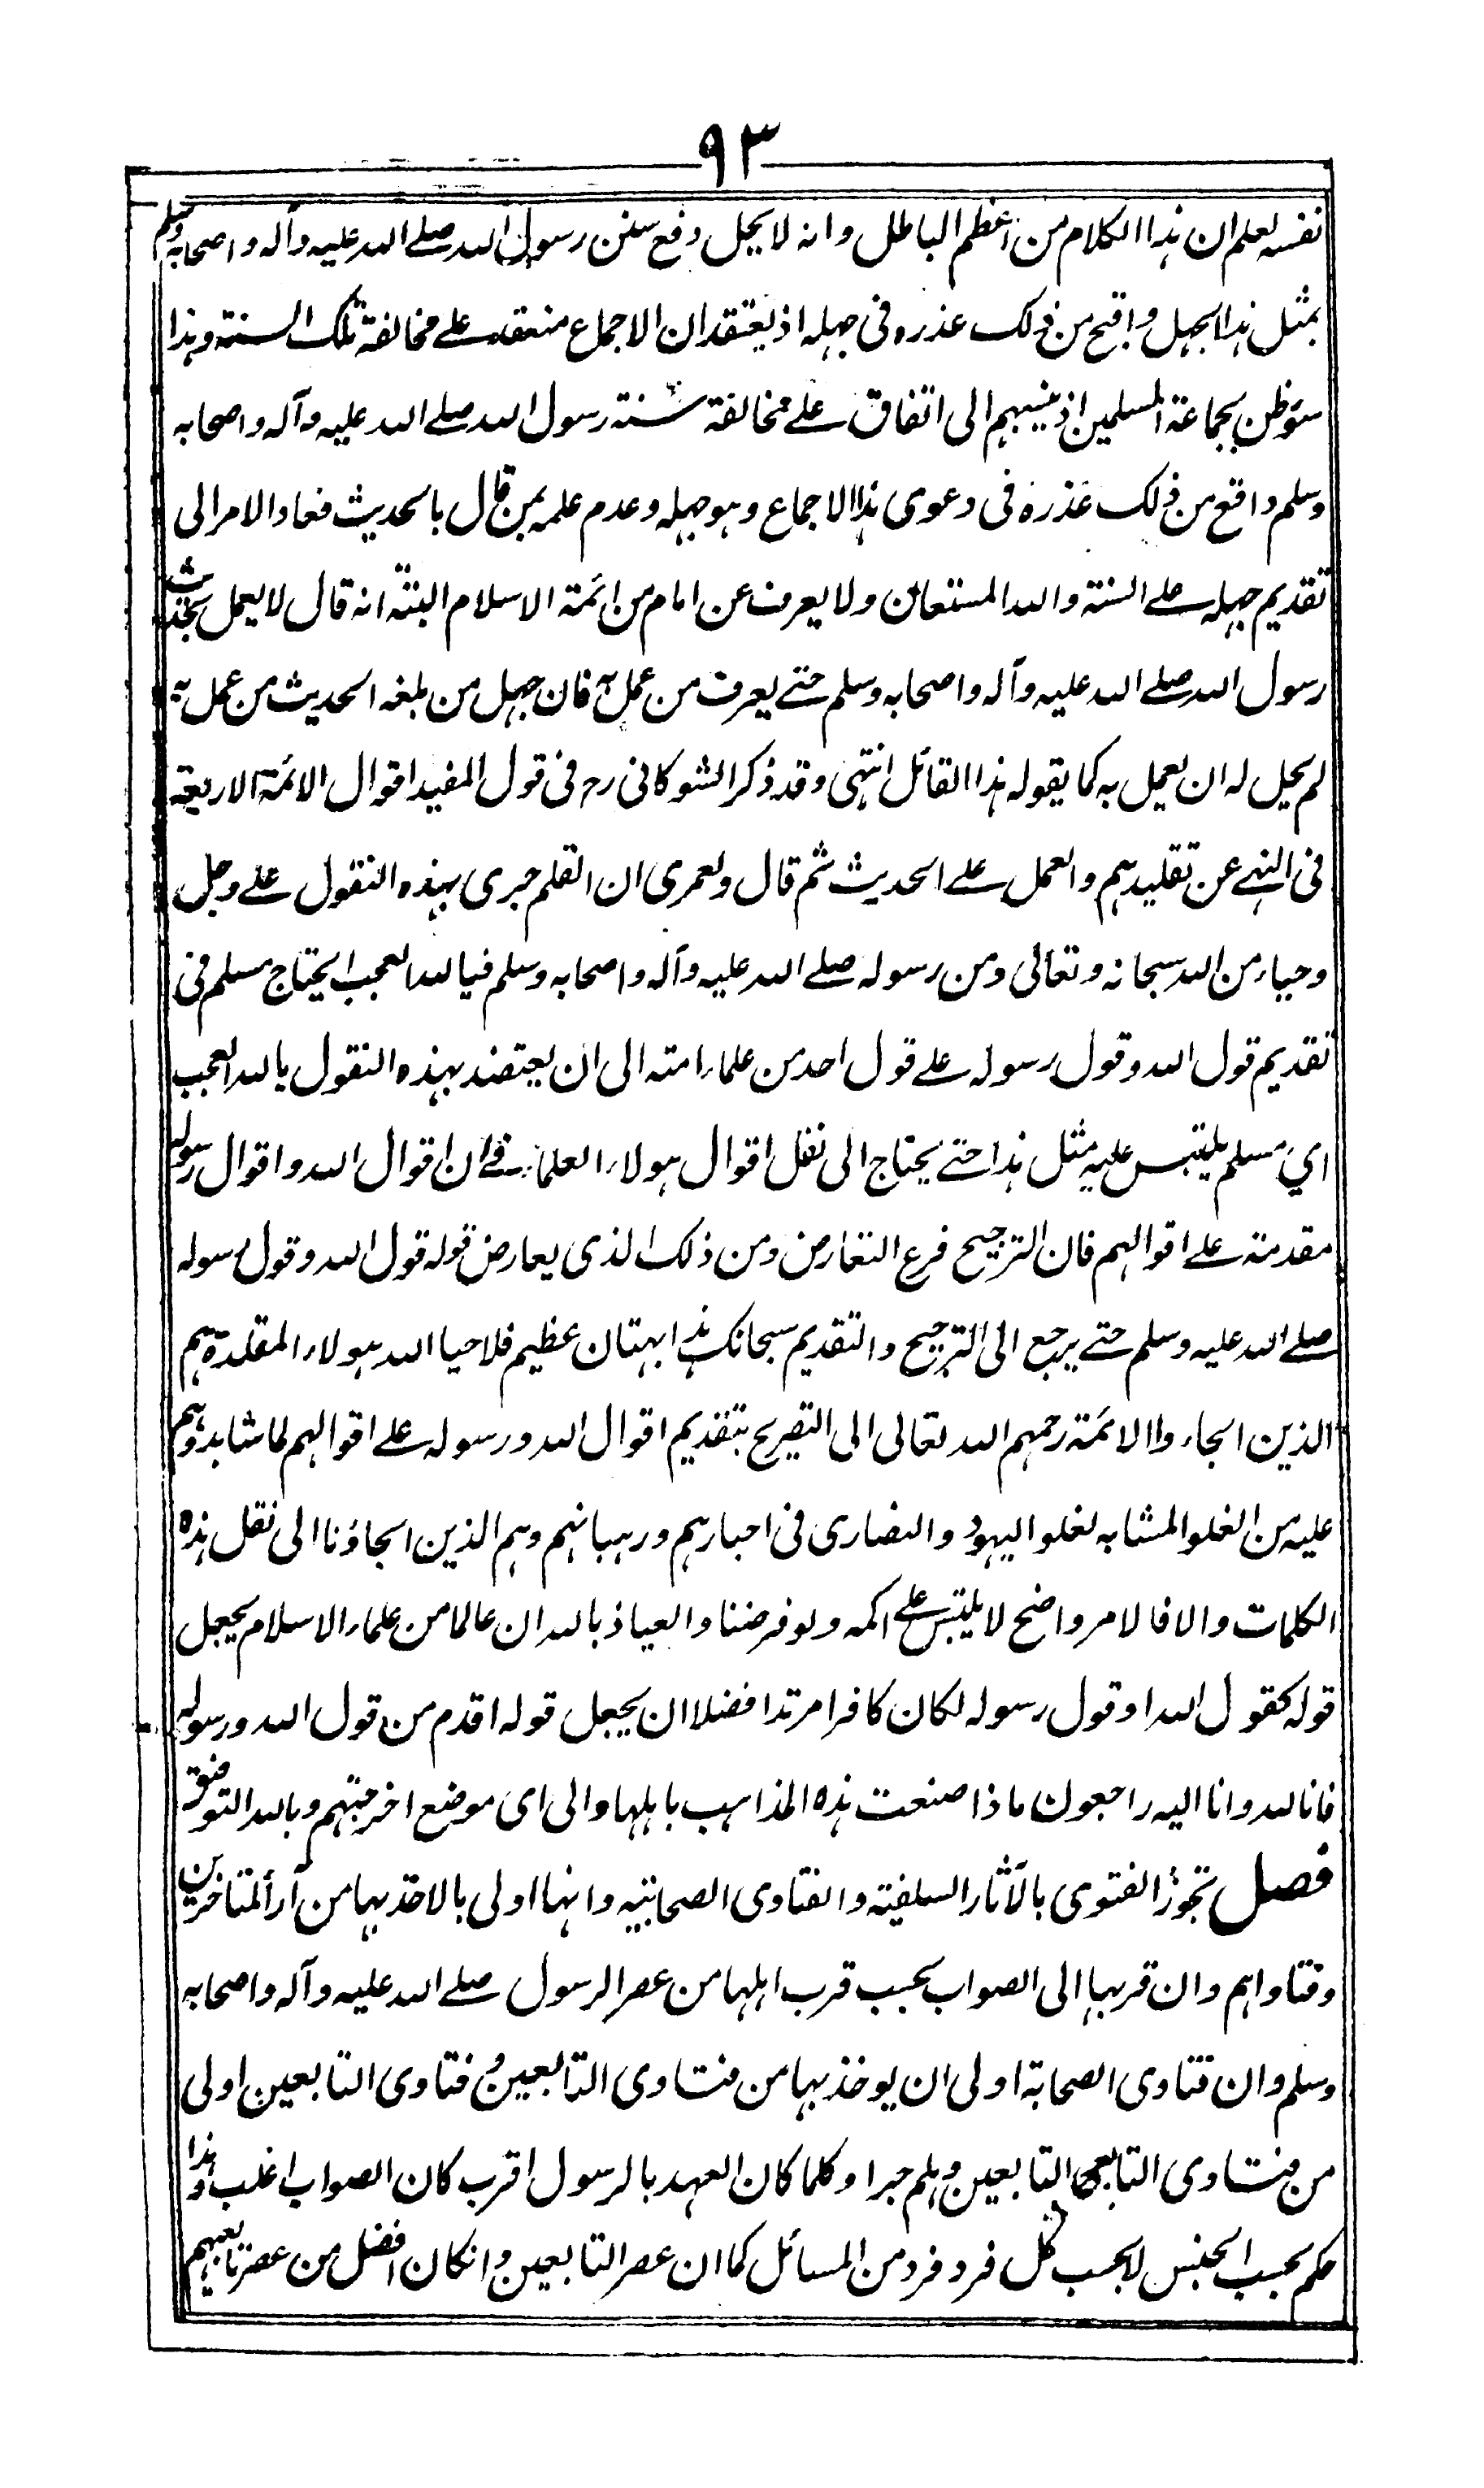 ٩٣
نفسه لعلم ان هذا الكلام من اعظم الباطل وانه لا يحل دفع سنن رسول الله صلے الله عليه وآله واصحابه وسلم
بمثل هذا الجهل واقبح من ذلك عذره فى جهله اذ يعتقد ان الاجماع منعقد علے مخالفة تلك السنة وهذا
سوء ظن بجماعة المسلمين اذ ينسبهم الى اتفاق علے مخالفة سنة رسول الله صلے الله عليه وآله واصحابه
وسلم واقبح من ذلك عذره فى دعوى هذا الاجماع وهو جهله وعدم علمه بمن قال بالحديث فعاد الامر الى
تقديم جهله علے السنة والله المستعان ولا يعرف عن امام من ائمة الاسلام البتة انه قال لا يعمل بحديث
رسول الله صلے الله عليه وآله واصحابه وسلم حتے يعرف من عمل به فان جهل من بلغه الحديث من عمل به
لم يحل له ان يعمل به كما يقوله هذا القائل انتهى وقد ذكر الشوكانى رح فى قول المفيد اقوال الائمة الاربعة
فى النهے عن تقليدهم والعمل علے الحديث ثم قال ولعمرى ان القلم جرى بهذه النقول علے وجل
وحياء من الله سبحانه وتعالى ومن رسوله صلے الله عليه وآله واصحابه وسلم فيا لله العجب ايحتاج مسلم فى
تقديم قول الله وقول رسوله علے قول احد من علماء امته الى ان يعتضد بهذه النقول يا لله العجب
اي مسلم يلتبس عليه مثل هذا حتے يحتاج الى نقل اقوال هولاء العلماء فے ان اقوال الله واقوال رسوله
مقدمة علے اقوالهم فان الترجيح فرع التعارض ومن ذلك الذى يعارض قوله قول الله وقول رسوله
صلے الله عليه وسلم حتے يرجع الى الترجيح والتقديم سبحانك هذا بهتان عظيم فلا حيا الله هولاء المقلدة هم
الذين الجاءوا الائمة رحمهم الله تعالى الى التصريح بتقديم اقوال الله ورسوله علے اقوالهم لما شاهدوهم
عليه من الغلو المشابه لغلو اليهود والنصارى فى احبارهم ورهبانهم وهم الذين الجاؤنا الى نقل هذه
الكلمات والا فالامر واضح لا يلتبس علے اكمه ولو فرضنا والعياذ بالله ان عالما من علماء الاسلام يجعل
قوله كقول الله او قول رسوله لكان كافرا مرتدا فضلا ان يجعل قوله اقدم من قول الله ورسوله
فانا لله وانا اليه راجعون ماذا صنعت هذه المذاهب باهلها والى اى موضع اخرجتهم وبالله التوفيق
فصل تجوز الفتوى بالآثار السلفية والفتاوى الصحابية وانها اولى بالاخذ بها من آراء المتاخرين
وفتاواهم وان قربها الى الصواب بحسب قرب اهلها من عصر الرسول صلے الله عليه وآله واصحابه
وسلم وان فتاوى الصحابة اولى ان يوخذ بها من فتاوى التابعين وفتاوى التابعين اولى
من فتاوى التابعى التابعين وهلم جرا وكلما كان العهد بالرسول اقرب كان الصواب اغلب وهذا
حكم بحسب الجنس لا بحسب كل فرد فرد من المسائل كما ان عصر التابعين وانكان افضل من عصر تابعيهم